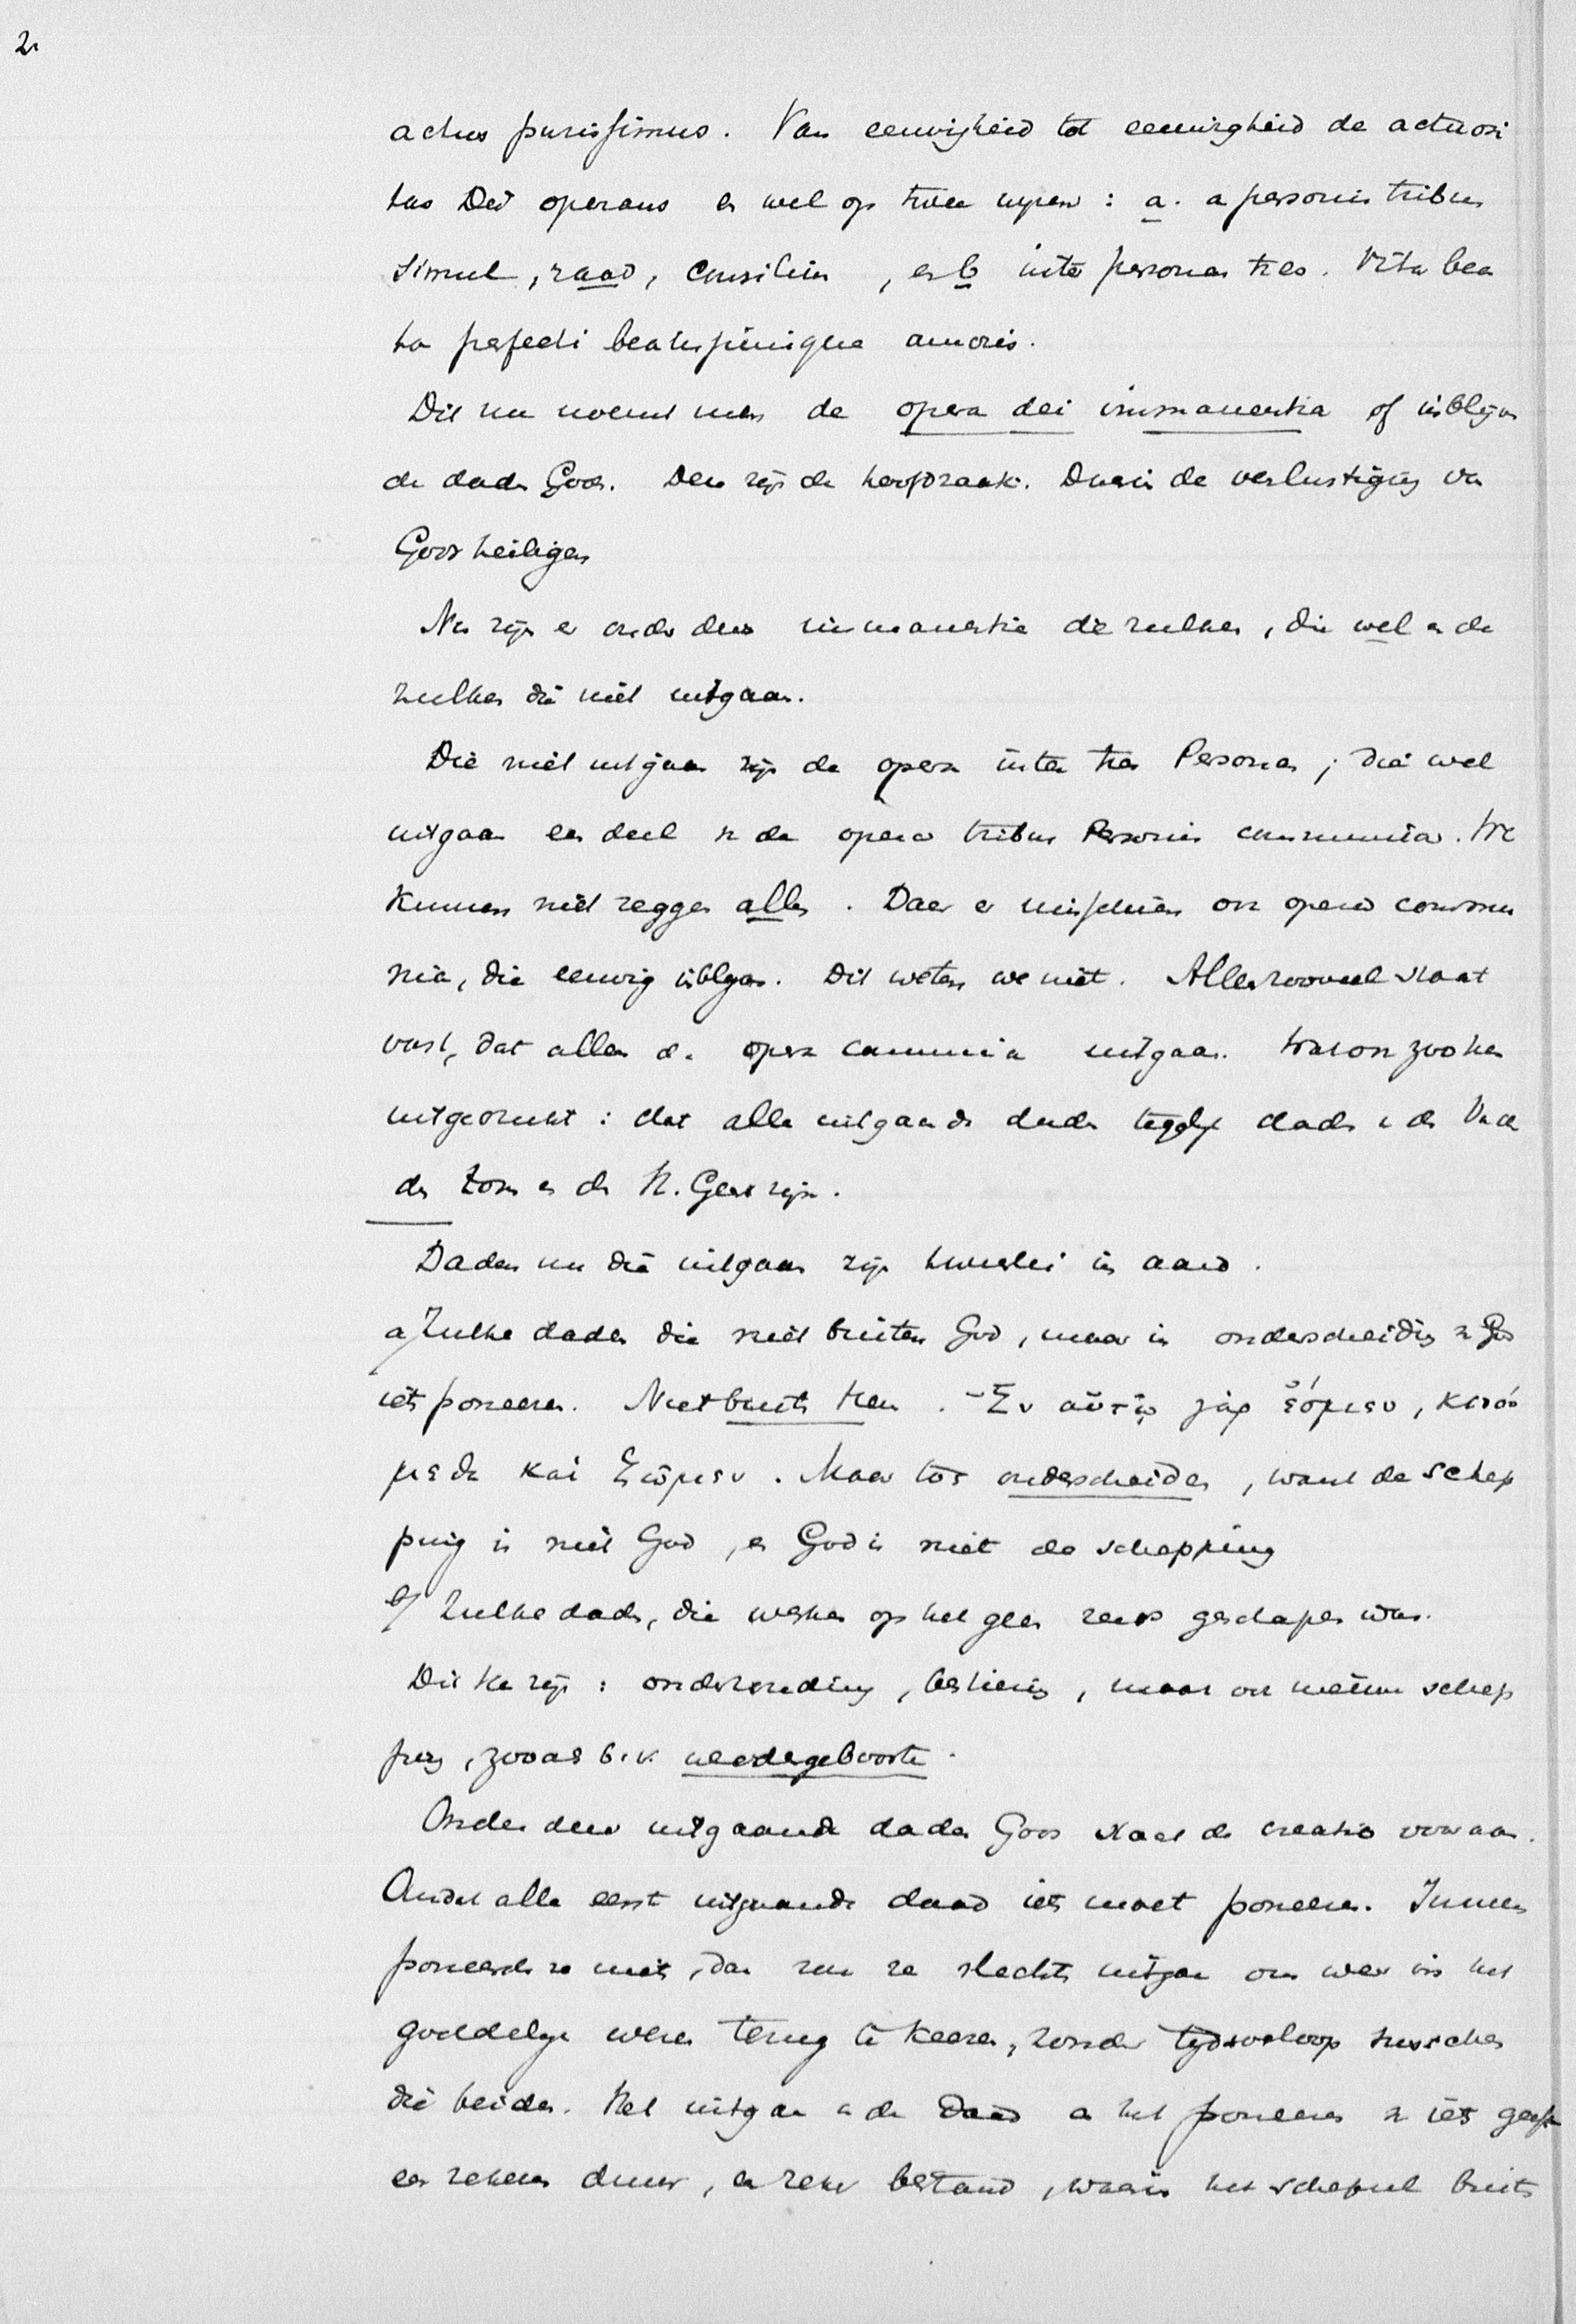 2.
actus purissimus. Van eeuwigheid tot eeuwigheid de actuosi
tas Dei operans en wel op twee wijzen: a. a personis tribus
simul, raad, consilium, en b inter personas tres. Vita bea
ta perfecti beatissimique amoris.
Dit nu noemt men de opera dei immanentia of inblijven
de daden Gods. Deze zijn de hoofdzaak. Daarin de verlustiging van
Gods heiligen
Nu zijn er onder deze immanentia de zulken, die wel en de
zulken die niet uitgaan.
Die niet uitgaan zijn de opera inter tres Personas; die wel
uitgaan een deel v. de opera tribus Personis communia. We
kunnen niet zeggen alle. Daar er misschien ook opera commu
nia, die eeuwig inblijven. Dit weten we niet. Alleen zooveel staat
vast, dat alleen de opera communia uitgaan. Wat ook zoo kan
uitgedrukt: dat alle uitgaande daden tegelijk daden v. den Vader
den Zoon en den H. Geest zijn.
Daden nu die uitgaan zijn tweeërlei in aard.
a/ Zulke daden die niet buiten God, maar in onderscheiding v. God
iets poneeren. Niet buiten Hem. Ἐν αὐτῷ γὰρ ἐσμεν, κινού
μεθα καὶ ζῶμεν. Maar toch onderscheiden, want de schep
ping is niet God, en God is niet de schepping
b/ Zulke daden, die werken op hetgeen reeds geschapen was.
Dit kan zijn: onderhouding, bestiering, maar ook nieuwe schep
ping, zooals b.v. wedergeboorte.
Onder deze uitgaande daden Gods staat de creatio vooraan.
Omdat alle eerst uitgaande daad iets moet poneeren. Immers
poneerde ze niets, dan zou ze slechts uitgaan om weer in het
goddelijk wezen terug te keeren, zonder tijdsverloop tusschen
die beiden. Het uitgaan v. de daad en het poneeren v. iets geeft
een zekeren duur, en zeker bestand, waarin het schepsel buiten